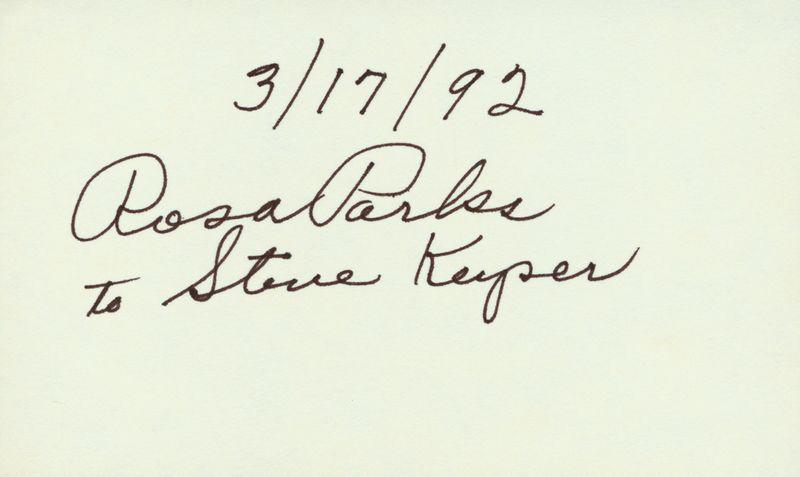 3/17/92
Rosa Parks
to Steve Kuyper